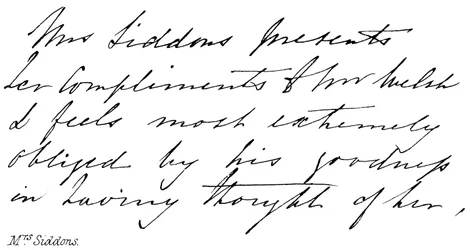 Mrs Siddons presents
her Compliments to Mr Welsh
& feels most extremely
obliged by his goodness
in having thought of her,
Mrs Siddons.